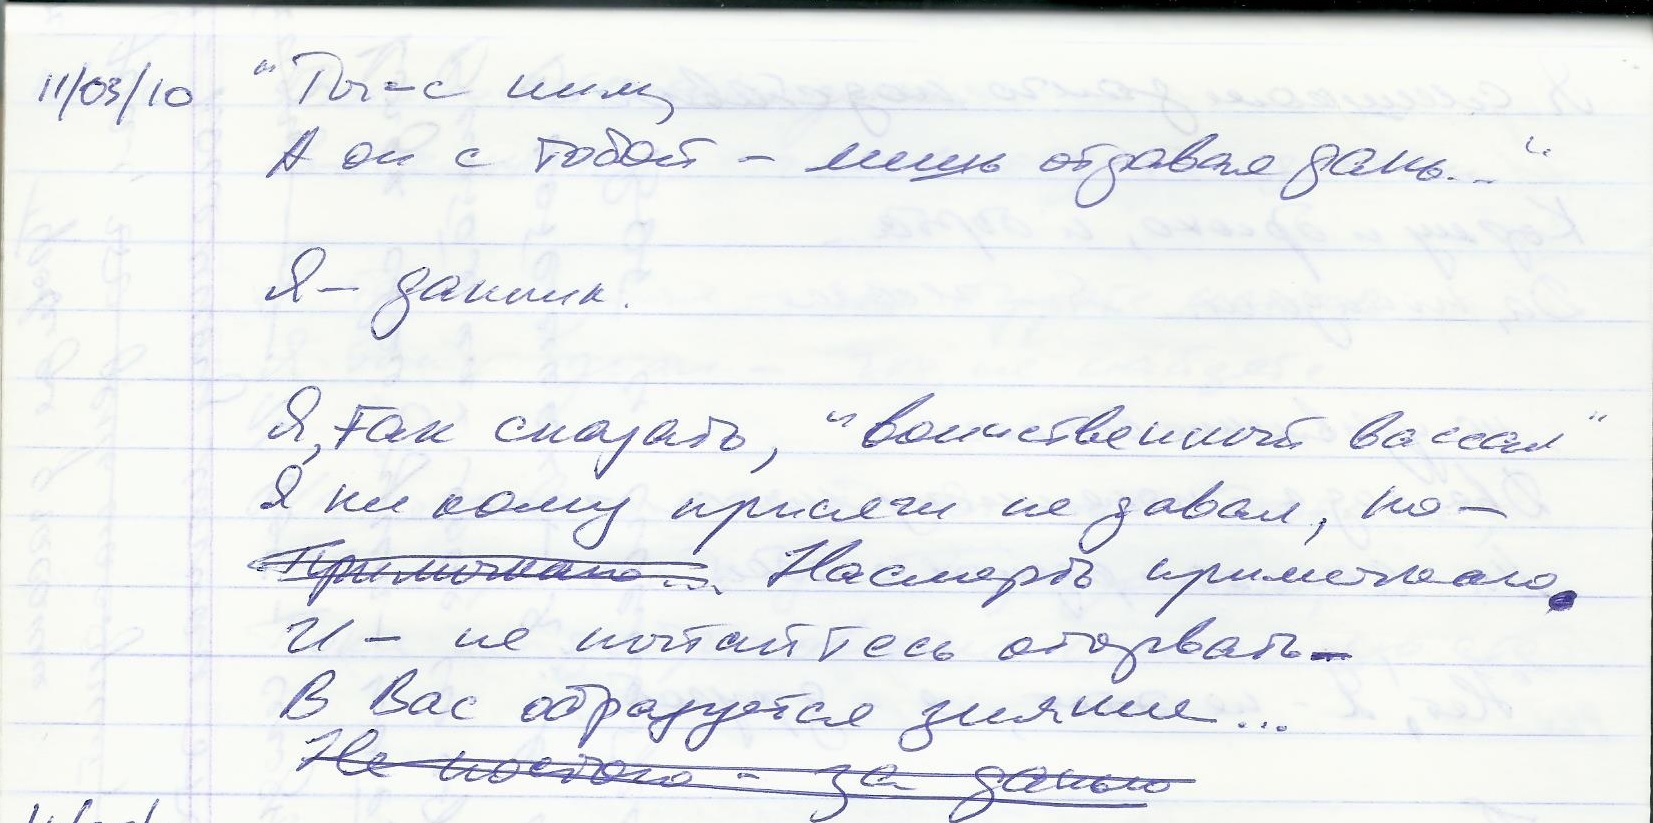 11/03/10 "Ты-с ним,
А он с тобой - лишь отдавая дань..."
Я - данник.
Я, так сказать, "воинственный вассал"
Я ни кому присяги не давал, но -
Примотано... Насмерть примотано.
И - не пытайтесь оторвать -
В Вас образуется зияние...
Не постою - за данью